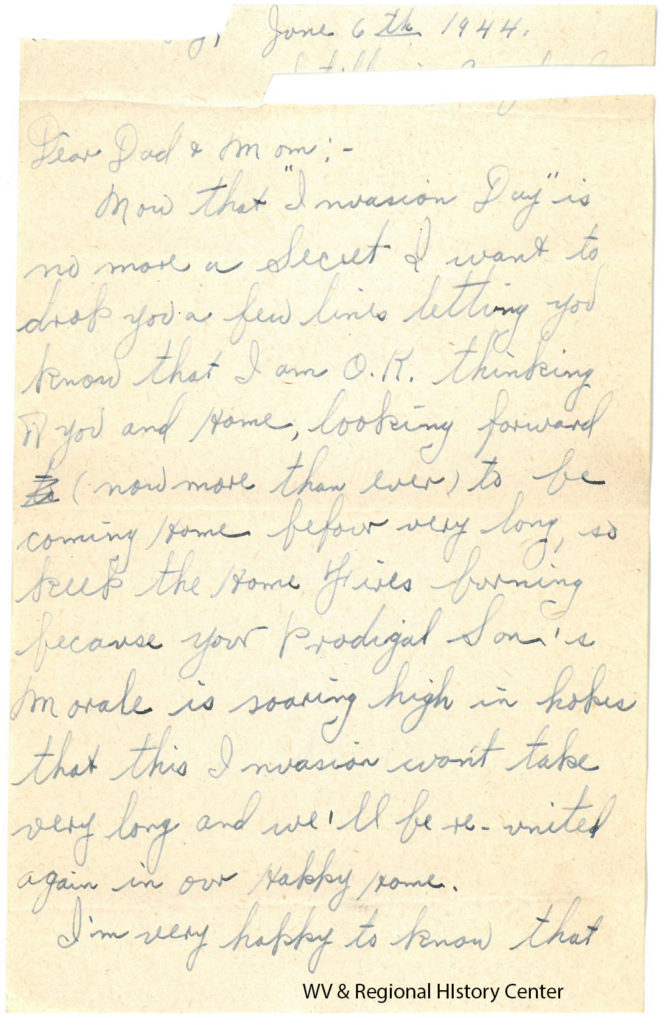 June 6th 1944.
Dear Dad & Mom:-
Now that "Invasion Day" is
no more a Secret I want to
drop you a few lines letting you
know that I am O.K. thinking
of you and Home, looking forward
(now more than ever) to be
coming Home befour very long, so
keep the Home Fires burning
because your Prodigal Son's
Morale is soaring high in hopes
that this Invasion won't take
very long and we'll be re-united
again in our Happy Home.
I'm very happy to know that
WV & Regional HIstory Center